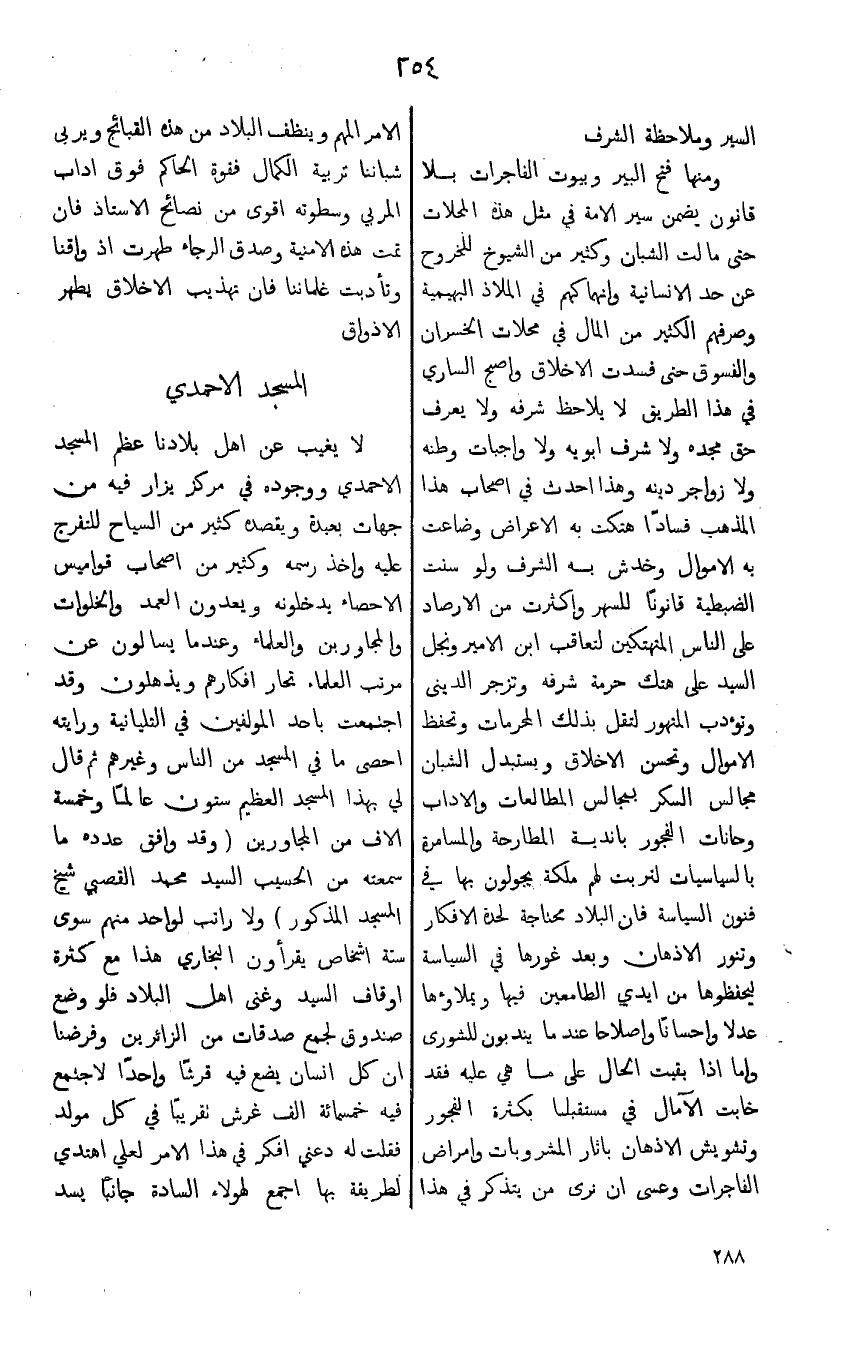 ٢٥٤
السير وملاحظة الشرف
ومنها فتح البير وبيوت الفاجرات بلا
قانون يضمن سير الامة في مثل هذه المحلات
حتى مالت الشبان وكثير من الشيوخ للخروج
عن حد الانسانية وانهماكهم في الملاذ البهيمية
وصرفهم الكثير من المال في محلات الخسران
والفسوق حتى فسدت الاخلاق واصبح الساري
في هذا الطريق لا يلاحظ شرفه ولا يعرف
حق مجده ولا شرف ابويه ولا واجبات وطنه
ولا زواجر دينه وهذا احدث في اصحاب هذا
المذهب فسادًا هتكت به الاعراض وضاعت
به الاموال وخدش به الشرف ولو سنت
الضبطية قانونًا للسهر واكثرت من الارصاد
على الناس المنهتكين لتعاقب ابن الامير ونجل
السيد على هتك حرمة شرفه وتزجر الدنيّ
وتؤدب المتهور لتقل بذلك المحرمات وتحفظ
الاموال وتحسن الاخلاق ويستبدل الشبان
مجالس السكر بمجالس المطالعات والاداب
وحانات الفجور باندية المطارحة والمسامرة
بالسياسيات لتربت لهم ملكة يجولون بها في
فنون السياسة فان البلاد محتاجة لحدة الافكار
وتنور الاذهان وبعد غورها في السياسة
ليحفظوها من ايدي الطامعين فيها ويملاؤها
عدلا واحسانًا واصلاحا عند ما يندبون للشورى
واما اذا بقيت الحال على ما هي عليه فقد
خابت الآمال في مستقبلنا بكثرة الفجور
وتشويش الاذهان باثار المشروبات وامراض
الفاجرات وعسى ان نرى من يتذكر في هذا
الامر المهم وينظف البلاد من هذه القبائح ويربي
شباننا تربية الكمال فقوة الحاكم فوق اداب
المربي وسطوته اقوى من نصائح الاستاذ فان
تمت هذه الامنية وصدق الرجاء طهرت اذواقنا
وتأدبت غلماننا فان تهذيب الاخلاق يطهر
الاذواق
المسجد الاحمدي
لا يغيب عن اهل بلادنا عظم المسجد
الاحمدي ووجوده في مركز يزار فيه من
جهات بعيدة ويقصده كثير من السياح للتفرج
عليه واخذ رسمه وكثير من اصحاب قواميس
الاحصاء يدخلونه ويعدون العمد والخلوات
والمجاورين والعلماء وعندما يسالون عن
مرتب العلماء تحار افكارهم ويذهلون وقد
اجتمعت باحد المولفين في التليانية ورايته
احصى ما في المسجد من الناس وغيرهم ثم قال
لي بهذا المسجد العظيم ستون عالمًا وخمسة
الاف من المجاورين ( وقد وافق عدده ما
سمعته من الحسيب السيد محمد القصبي شيخ
المسجد المذكور ) ولا راتب لواحد منهم سوى
ستة اشخاص يقرأون البخاري هذا مع كثرة
اوقاف السيد وغنى اهل البلاد فلو وضع
صندوق لجمع صدقات من الزائرين وفرضنا
ان كل انسان يضع فيه قرشًا واحدًا لاجتمع
فيه خمسمائة الف غرش تقريبًا في كل مولد
فقلت له دعني افكر في هذا الامر لعلي اهتدي
لطريقة بها اجمع لهولاء السادة جانبًا يسد
٢٨٨